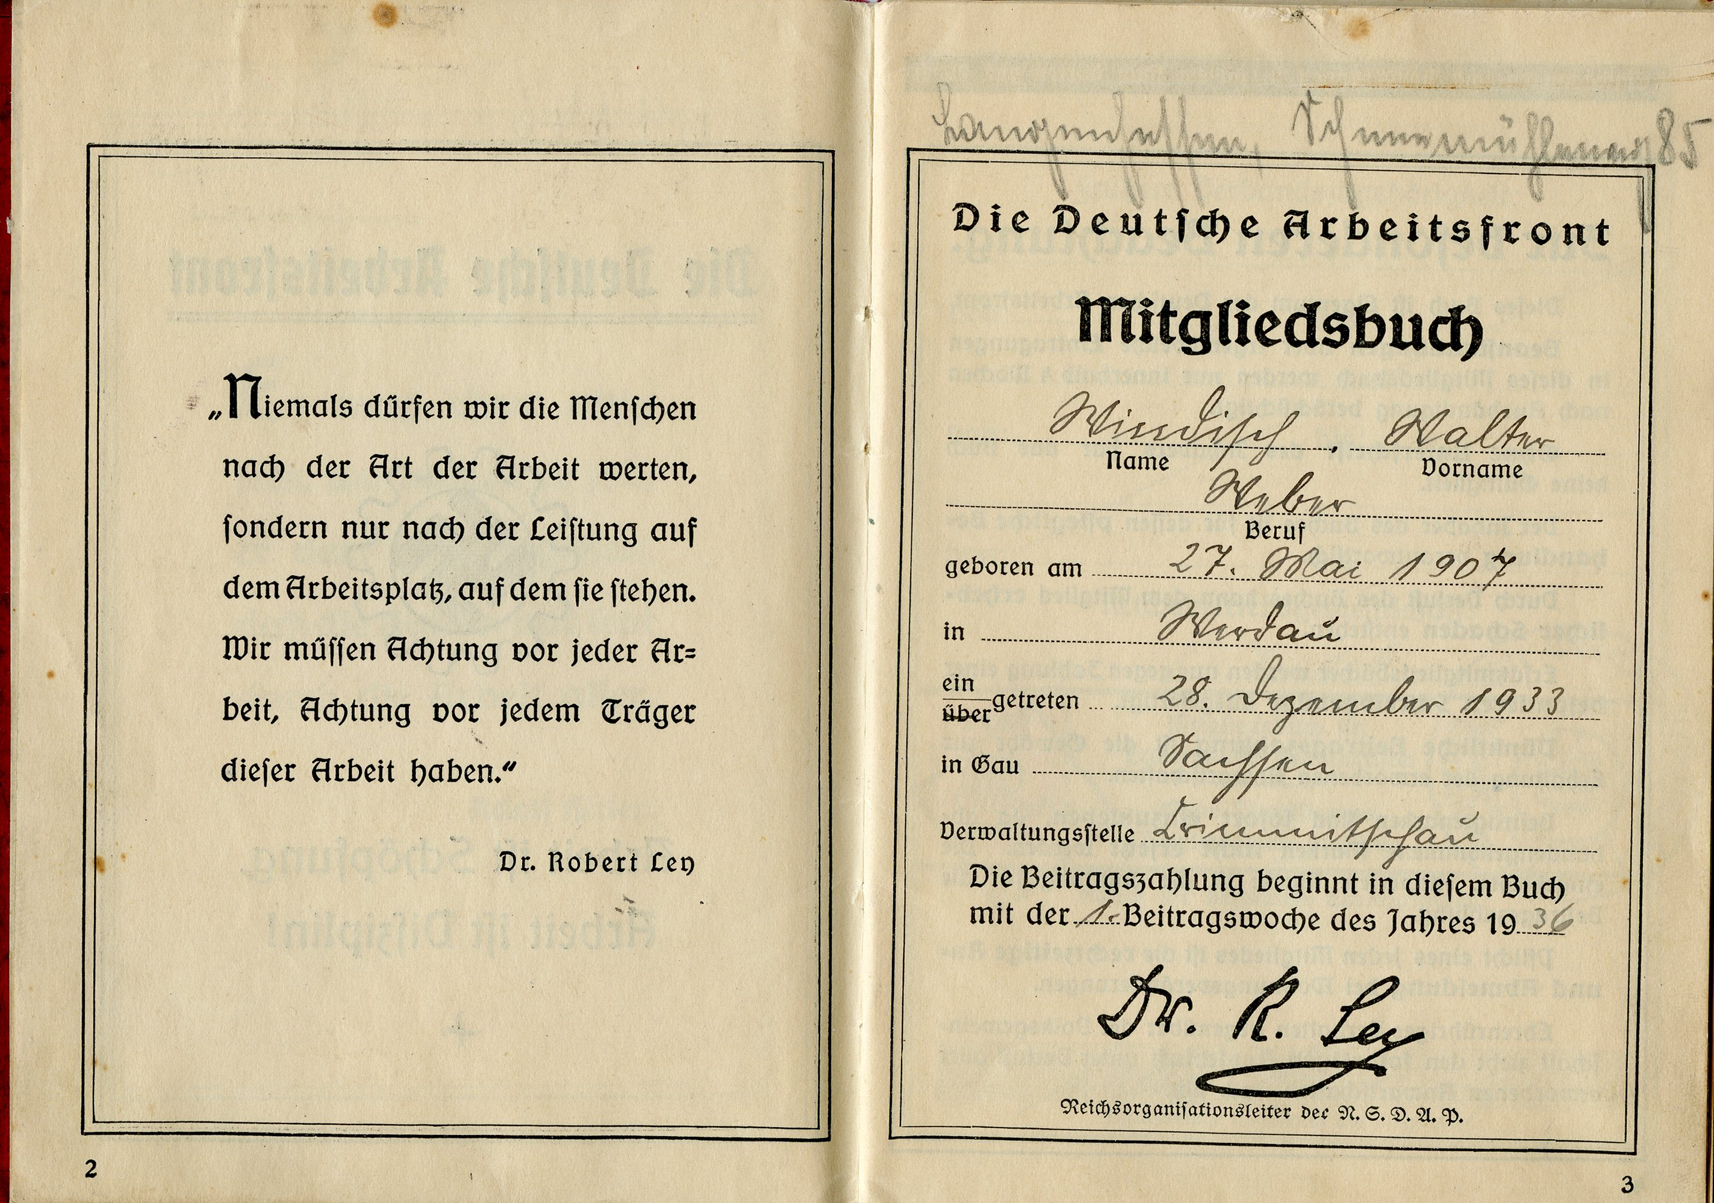 „Niemals dürfen wir die Menschen
nach der Art der Arbeit werten,
sondern nur nach der Leistung auf
dem Arbeitsplatz, auf dem sie stehen.
Wir müssen Achtung vor jeder Ar=
beit, Achtung vor jedem Träger
dieser Arbeit haben.“
Dr. Robert Ley
2
Langenhessen, 85
Die Deutsche Arbeitsfront
Mitgliedsbuch
Windisch, Walter
Name Vorname
Weber
Beruf
geboren am 27. Mai 1907
in Werdau
ein
über getreten 28. Dezember 1933
in Gau Sachsen
Verwaltungsstelle Crimmitschau
Die Beitragszahlung beginnt in diesem Buch
mit der 1. Beitragswoche des Jahres 1936
Dr. R. Ley
Reichsorganisationsleiter der N. S. D. A. P.
3